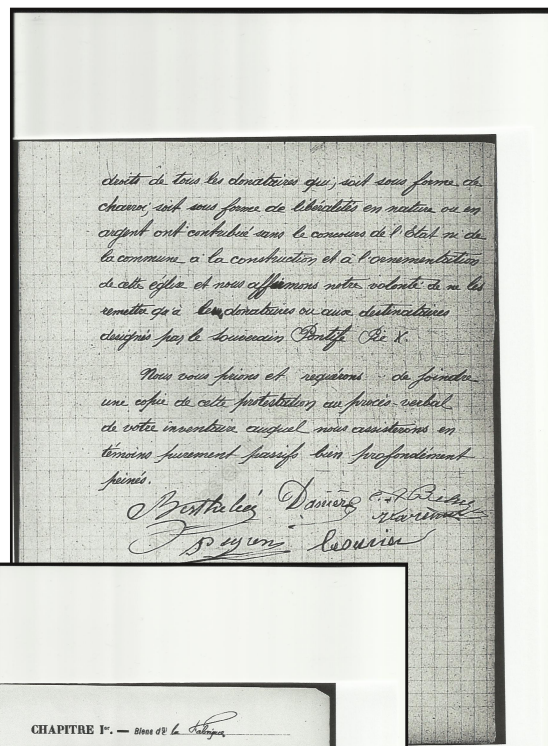 droits de tous les donataires qui, soit sous forme de
charroi, soit sous forme de libéralités en nature ou en
argent ont contribué sans le concours de l'Etat ni de
la commune à la construction et à l'ornementation
de cette église et nous affirmons notre volonté de ne les
remettre qu'à les donateurs ou aux destinataires
designés par le Souverain Pontife Pie X.
Nous vous prions et requérons de joindre
une copie de cette protestation au procès-verbal
de votre inventaire auquel nous assisterons en
témoins purement passifs bien profondément
peinés.
CHAPITRE Ier. — Biens de la Fabrique